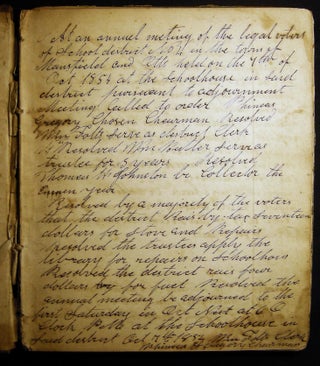 At an annual meeting of the legal voters
of School district No 4 in the town of
Mansfield and held on the 7th of
Oct 1853 at the Schoolhouse in said
district pursuant to adjournment
Meeting Called to order Phineas
Gregory Chosen Chairman Resolved
Wm Folts Serve as district Clerk
Resolved Wm Serve as
trustee for 3 years Resolved
Thomas W Johnston be Collector the
year
Resolved by a majority of the voters
that the district Rais by tax Seventeen
dollars for Stove and Repairs
Resolved the trustees apply the
library for repairs on Schoolhous
Resolved the district rais four
dollars for fuel Resolved the
annual meeting be adjourned to the
first Saturday in Oct Next at 6 O
Clock at the Schoolhouse in
Said district Oct 7th 1853 Wm Folts Clerk
Phineas Gregory Chairman